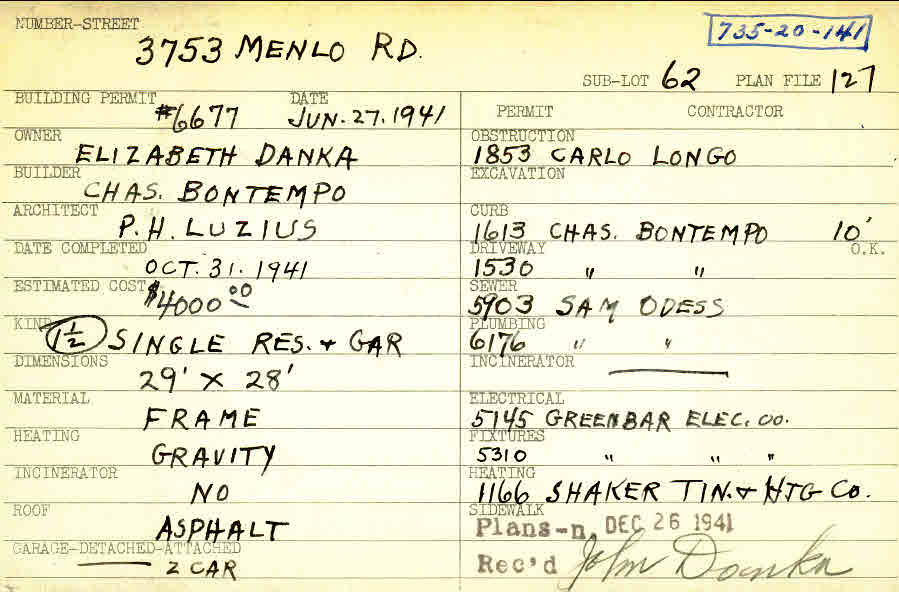 NUMBER-STREET
3753 MENLO RD.
735-20-141
SUB-LOT 62 PLAN FILE 127
BUILDING PERMIT #6677 DATE JUN. 27. 1941
OWNER ELIZABETH DANKA
BUILDER CHAS. BONTEMPO
ARCHITECT P. H. LUZIUS
DATE COMPLETED OCT. 31. 1941
ESTIMATED COST $4000 00
KIND 1 1/2 SINGLE RES. & GAR
DIMENSIONS 29' X 28'
MATERIAL FRAME
HEATING GRAVITY
INCINERATOR NO
ROOF ASPHALT
GARAGE-DETACHED-ATTACHED
2 CAR
PERMIT CONTRACTOR
OBSTRUCTION
1853 CARLO LONGO
EXCAVATION
CURB
1613 CHAS. BONTEMPO 10'
DRIVEWAY O.K.
1530 " "
SEWER
5903 SAM ODESS
PLUMBING
6176 " "
INCINERATOR
ELECTRICAL
5145 GREENBAR ELEC. CO.
FIXTURES
5310 " " "
HEATING
1166 SHAKER TIN. & HTG CO.
SIDEWALK
Plans-n DEC 26 1941
Rec'd John Danka